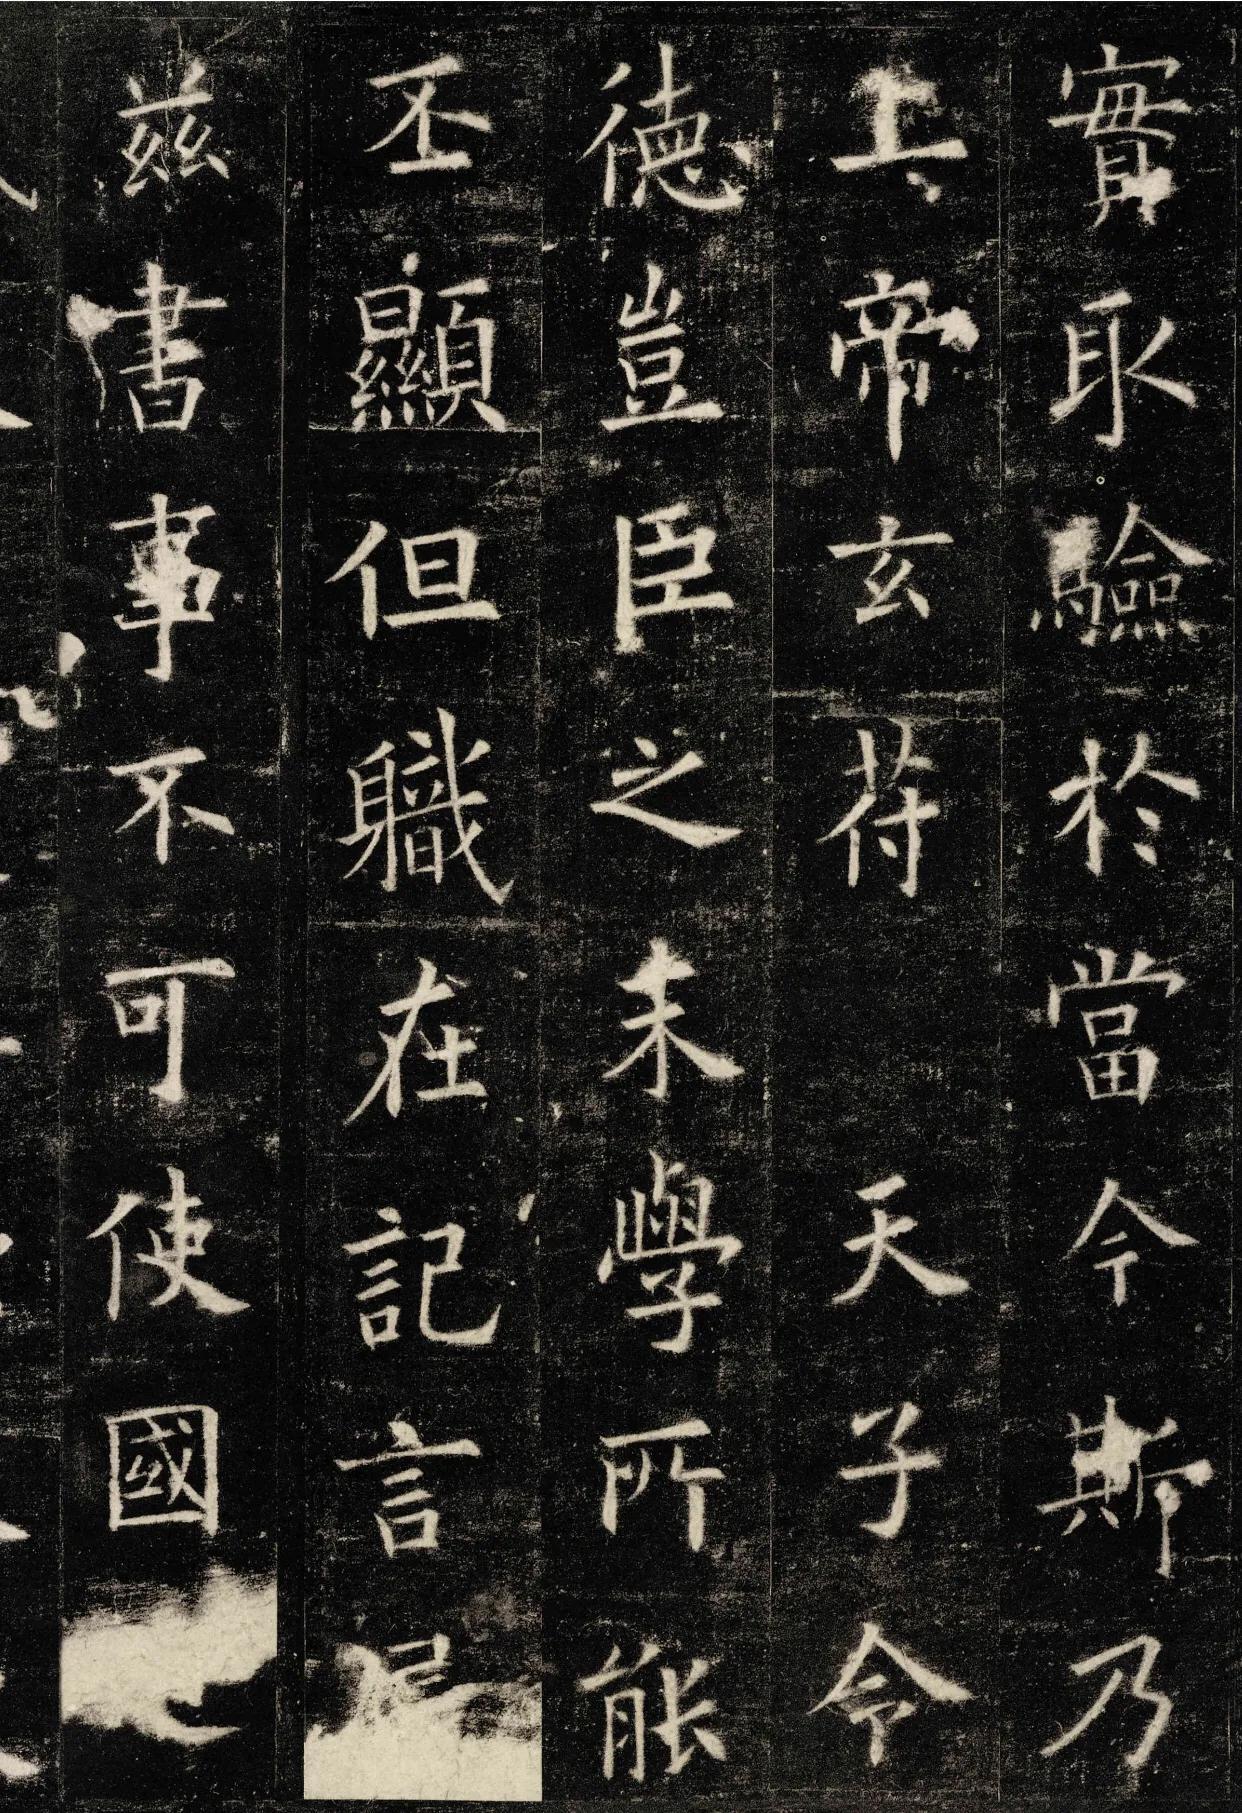 實取驗於當今斯乃
上帝玄符天子令
德豈臣之末學所能
丕顯但職在記言屬
茲書事不可使國